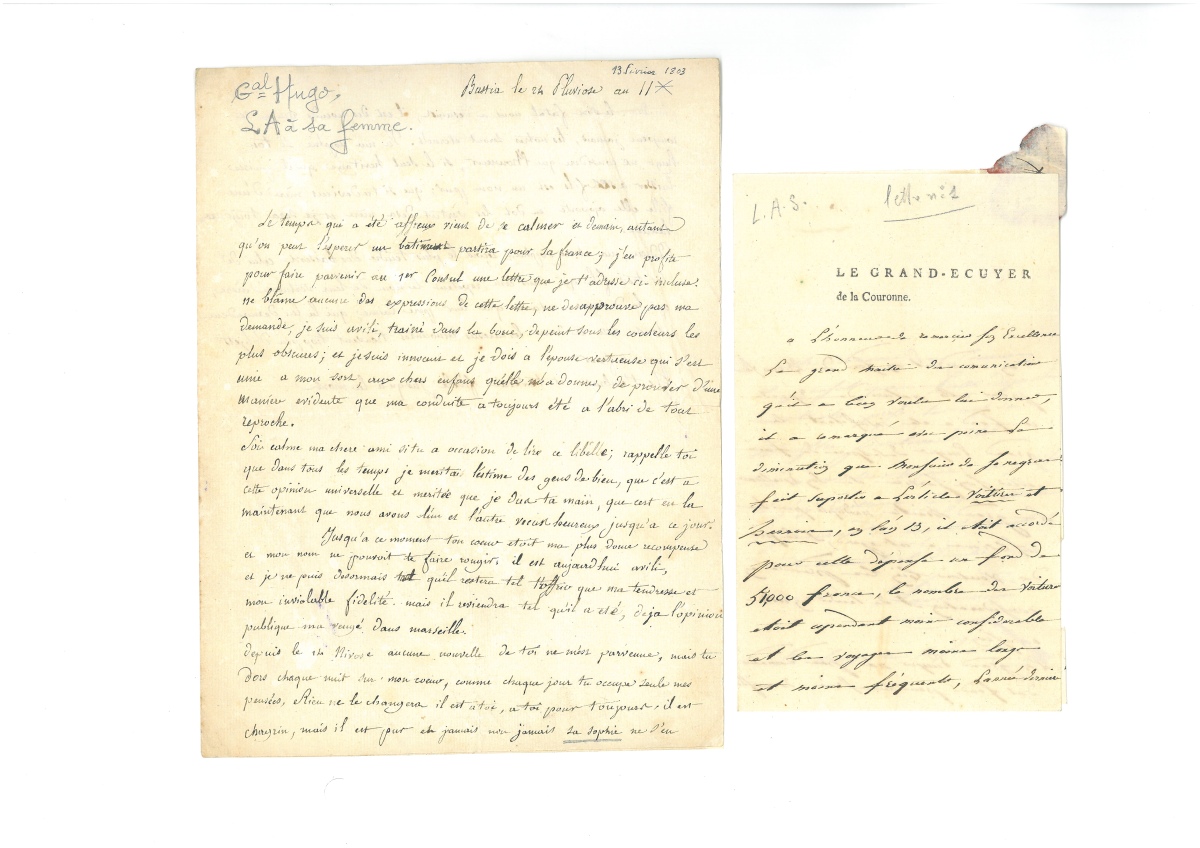 13 février 1803
Gal Hugo,
LA à sa femme.
Bastia le 24 Pluviose an 11
Le temps qui a été affreux vient de se calmer et demain, autant
qu'on peut l'esperer un bâtiment partira pour la france; j'en profite
pour faire parvenir au 1er Consul une lettre que je t'adresse ci-incluse.
ne blâme aucune des expressions de cette lettre, ne desapprouve pas ma
demande, je suis avili, trainé dans la boue, depeint sous les couleurs les
plus obscures; et je suis innocent et je dois a l'epouse vertueuse qui s'est
unie a mon sort, aux chers enfans qu'elle m'a donnés, de prouver d'une
maniere evidente que ma conduite a toujours été a l'abri de tout
reproche.
Sois calme ma chere ami si tu a occasion de lire ce libelle; rappelle toi
que dans tous les temps je meritai l'estime des gens de bien, que c'est a
cette opinion universelle et meritée que je dus ta main, que c'est en la
maintenant que nous avons l'un et l'autre vecus heureux jusqu'a ce jour.
Jusqu'a ce moment ton coeur etoit ma plus douce recompense
et mon nom ne pouvoit te faire rougir. il est aujourd'hui avili,
et je ne puis desormais t'offrir que ma tendresse et
mon inviolable fidelité. mais il reviendra tel qu'il a eté, deja l'opinion
publique m'a vengé dans marseille.
depuis le 14 Nivose aucune nouvelle de toi ne m'est parvenue, mais tu
Dors chaque nuit sur mon coeur, comme chaque jour tu occupe seule mes
pensées, Rien ne le changera il est a toi, a toi pour toujours, il est
chagrin, mais il est pur et jamais non jamais sa sophie ne s'en
L.A.S.
lettre n° 2
LE GRAND-ECUYER
de la Couronne.
a L'honneur de remercier son Excellence
Le grand maitre de comunication
qu'il a bien voulu lui donner,
il a remarqué avec peine La
diminution que Monsieur de
fait suporter a L'article voitures et
harnois, en l'an 13, il etoit accordé
pour cette dépense un fond de
francs, le nombre des voitures
etoit cependant moins considerable
et les voyages moins longs
et moins fréquents, L'année derniere